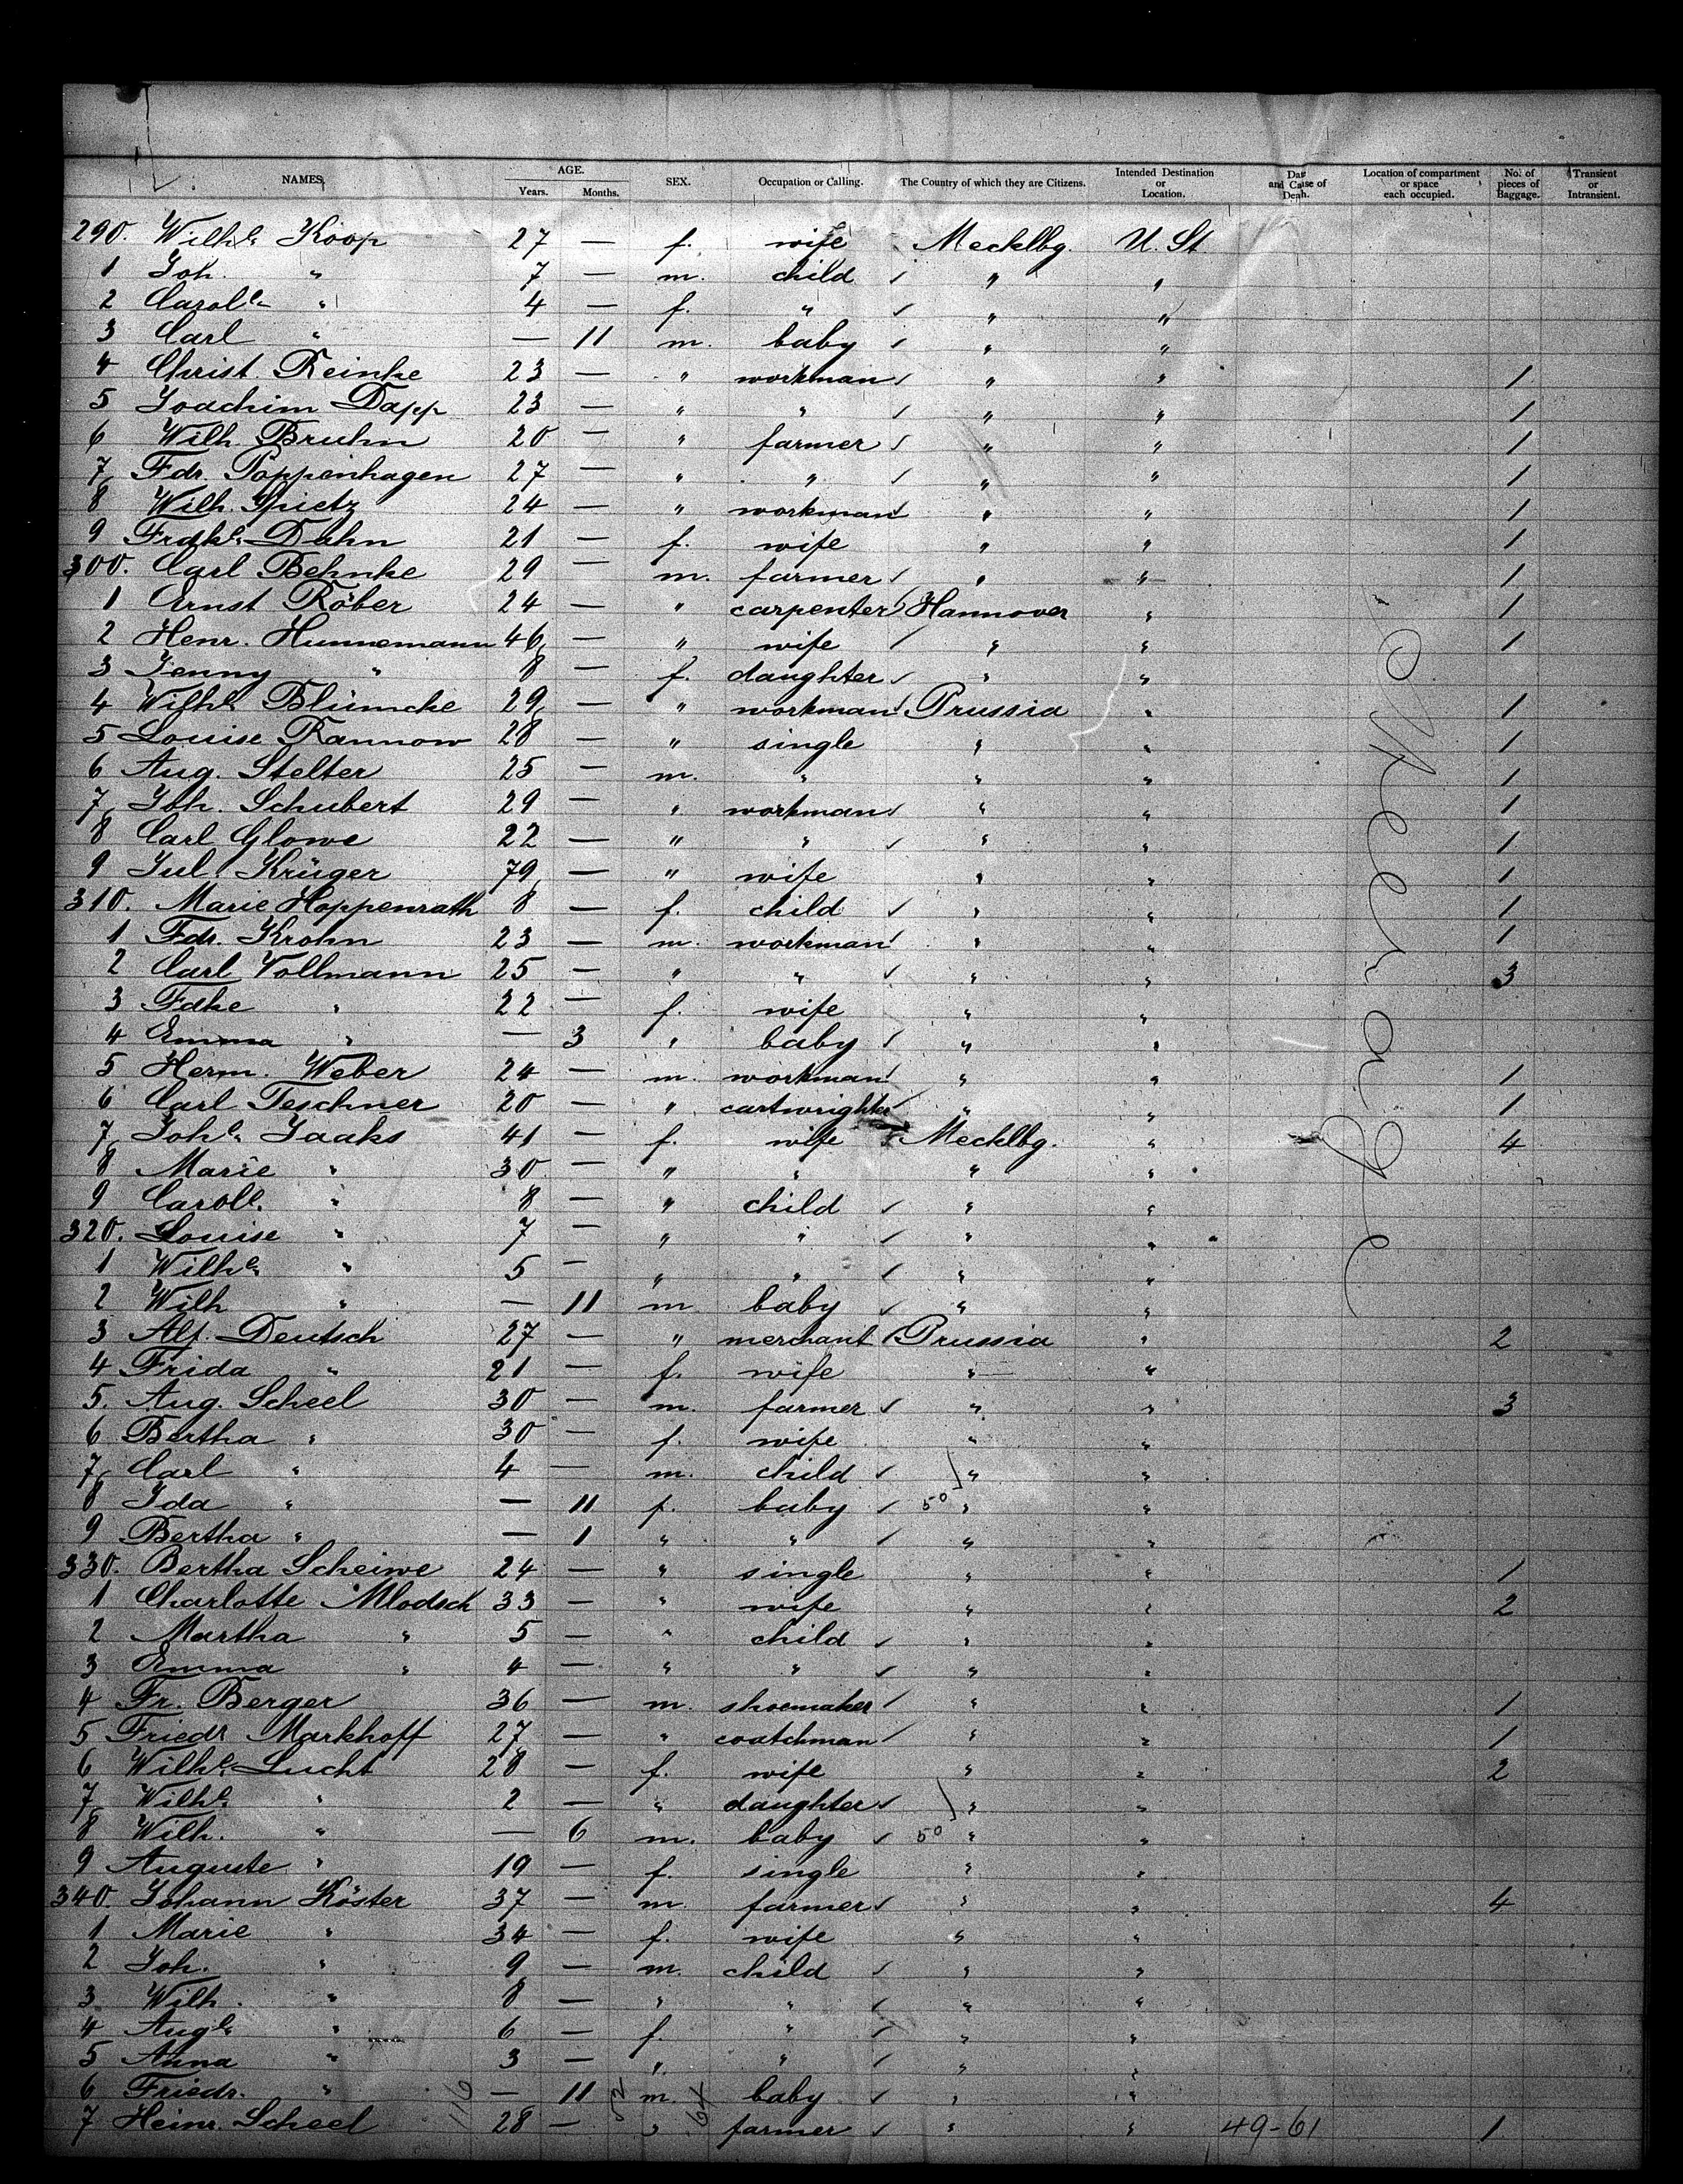 NAMES. AGE. Years. Months. SEX. Occupation or Calling. The Country of which they are Citizens. Intended Destination or Location. Date and Cause of Death. Location of compartment or space each occupied. No. of pieces of Baggage. Transient or Intransient.
290. Wilhe. Koop 27 — f. wife Mecklbg. U. St.
1 Joh. " 7 — m. child " "
2 Carole. " 4 — f. " " "
3 Carl " — 11 m. baby " "
4 Christ Reinke 23 — " workman " " 1
5 Joachim Dapp 23 — " " " " 1
6 Wilh. Bruhn 20 — " farmer " " 1
7 Fdr. Poppenhagen 27 — " " " " 1
8 Wilh. Spietz 24 — " workman " " 1
9 Frdke. Dahn 21 — f. wife " " 1
300. Carl Behnke 29 — m. farmer " " 1
1 Ernst Röber 24 — " carpenter Hannover " 1
2 Henr. Hunnemann 46 — " wife " " 1
3 Jenny " 8 — f. daughter " "
4 Wilhe. Blümcke 29 — " workman Prussia " 1
5 Louise Rannow 28 — " single " " 1
6 Aug. Stelter 25 — m. " " " 1
7 Joh. Schubert 29 — " workman " " 1
8 Carl Glowe 22 — " " " " 1
9 Jul. Krüger 79 — " wife " " 1
310. Marie Hoppenrath 8 — f. child " " 1
1 Fdr. Krohn 23 — m. workman " " 1
2 Carl Vollmann 25 — " " " " 3
3 Fdke " 22 — f. wife " "
4 Emma " — 3 " baby " "
5 Herm. Weber 24 — m. workman " " 1
6 Carl Teschner 20 — " cartwrighter " " 1
7 Johe. Jaaks 41 — f. wife Mecklbg. " 4
8 Marie " 30 — " " " "
9 Carole. " 8 — " child " "
320. Louise " 7 — " " " "
1 Wilhe. " 5 — " " " "
2 Wilh " — 11 m. baby " "
3 Alf. Deutsch 27 — " merchant Prussia " 2
4 Frida " 21 — f. wife " "
5. Aug. Scheel 30 — m. farmer " " 3
6 Bertha " 30 — f. wife " "
7 Carl " 4 — m. child " "
8 Ida " — 11 f. baby 50 " "
9 Bertha " — 1 " " " "
330. Bertha Scheiwe 24 — " single " " 1
1 Charlotte Mlodsch 33 — " wife " " 2
2 Martha " 5 — " child " "
3 Emma " 4 — " " " "
4 Fr. Berger 36 — m. shoemaker " " 1
5 Friedr Markhoff 27 — " coatchman " " 1
6 Wilhe. Lucht 28 — f. wife " " 2
7 Wilhe. " 2 — " daughter " "
8 Wilh. " — 6 m. baby 50 " "
9 Auguste " 19 — f. single " "
340. Johann Köster 37 — m. farmer " " 4
1 Marie " 34 — f. wife " "
2 Joh. " 9 — m. child " "
3 Wilh. " 8 — " " " "
4 Auge. " 6 — f. " " "
5 Anna " 3 — " " " "
6 Friedr. " 116 — 11 52 m. 64 baby " "
7 Heinr. Scheel 28 — " farmer " " 49-61 1